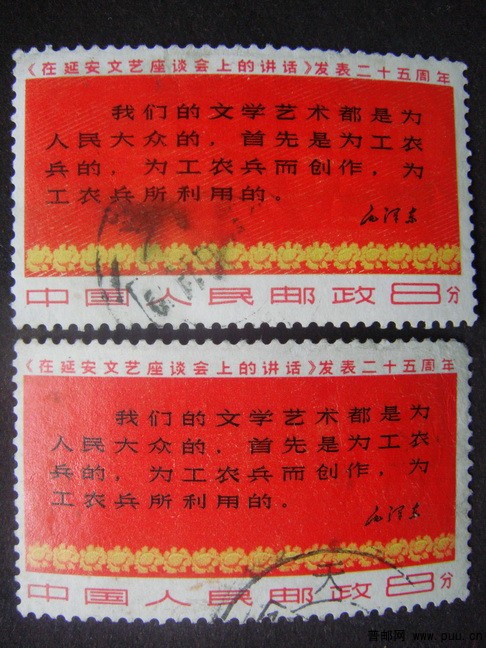 《在延安文艺座谈会上的讲话》发表二十五周年
我们的文学艺术都是为
人民大众的，首先是为工农
兵的，为工农兵而创作，为
工农兵所利用的。
毛泽东
中国人民邮政8分
《在延安文艺座谈会上的讲话》发表二十五周年
我们的文学艺术都是为
人民大众的，首先是为工农
兵的，为工农兵而创作，为
工农兵所利用的。
毛泽东
中国人民邮政8分
天
普邮网 www.puu.cn